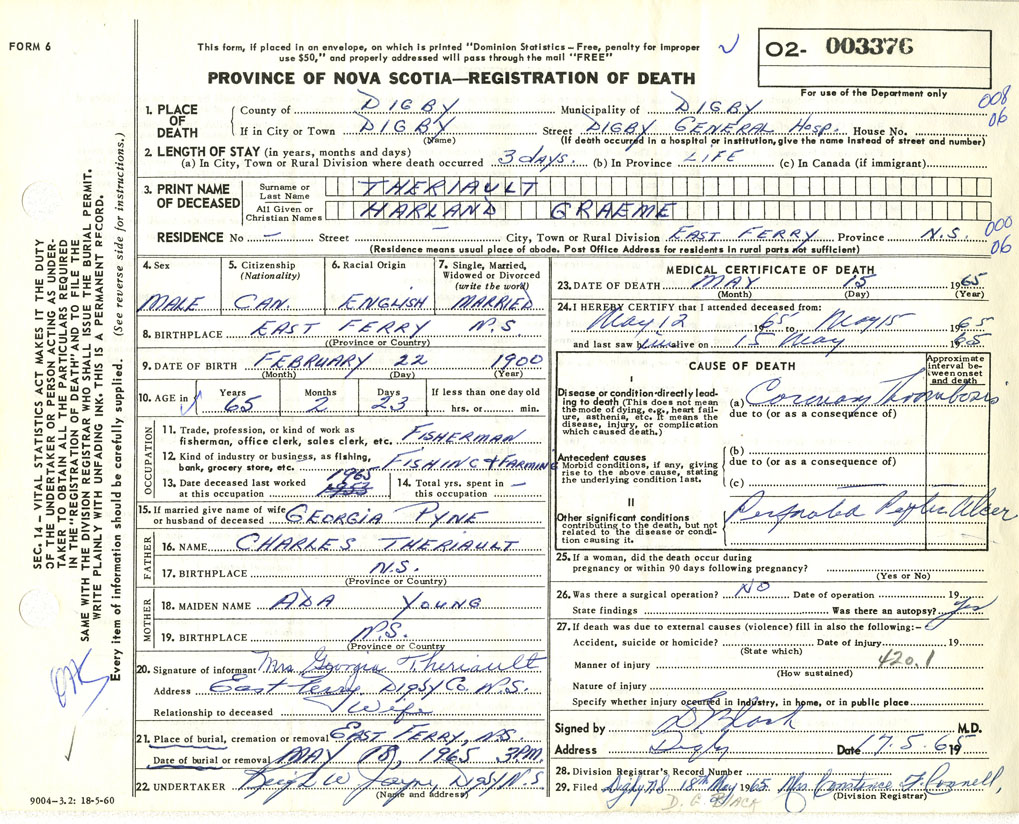 FORM 6
This form, if placed in an envelope, on which is printed "Dominion Statistics – Free, penalty for improper
use $50," and properly addressed will pass through the mail "FREE"
O2- 003376
For use of the Department only
PROVINCE OF NOVA SCOTIA—REGISTRATION OF DEATH
008
06
1. PLACE OF DEATH
County of DIGBY Municipality of DIGBY
If in City or Town DIGBY Street DIGBY GENERAL HOSP. House No.
(Name) (If death occurred in a hospital or institution, give the name instead of street and number)
2. LENGTH OF STAY (in years, months and days)
(a) In City, Town or Rural Division where death occurred 3 days. (b) In Province LIFE (c) In Canada (if immigrant)
3. PRINT NAME OF DECEASED
Surname or Last Name THERIAULT
All Given or Christian Names HARLAND GRAEME
000
06
RESIDENCE No – Street – City, Town or Rural Division EAST FERRY Province N.S.
(Residence means usual place of abode. Post Office Address for residents in rural parts not sufficient)
4. Sex MALE
5. Citizenship (Nationality) CAN.
6. Racial Origin ENGLISH
7. Single, Married, Widowed or Divorced (write the word) MARRIED
8. BIRTHPLACE EAST FERRY N.S.
(Province or Country)
9. DATE OF BIRTH FEBRUARY 22 1900
(Month) (Day) (Year)
10. AGE in Years 65 Months 2 Days 23 If less than one day old hrs. or min.
OCCUPATION
11. Trade, profession, or kind of work as
fisherman, office clerk, sales clerk, etc. FISHERMAN
12. Kind of industry or business, as fishing,
bank, grocery store, etc. FISHING & FARMING
13. Date deceased last worked
at this occupation 1965 1953
14. Total yrs. spent in
this occupation –
15. If married give name of wife
or husband of deceased GEORGIA PYNE
FATHER
16. NAME CHARLES THERIAULT
17. BIRTHPLACE N.S.
(Province or Country)
MOTHER
18. MAIDEN NAME ADA YOUNG
19. BIRTHPLACE N.S.
(Province or Country
20. Signature of informant Mrs Georgia Theriault
Address East Ferry Digby Co. N.S.
Relationship to deceased Wife
21. Place of burial, cremation or removal EAST FERRY, N.S.
Date of burial or removal MAY 18, 1965 3 P.M.
22. UNDERTAKER W Jayne, Digby N.S
(Name and address)
MEDICAL CERTIFICATE OF DEATH
23. DATE OF DEATH MAY 15 1965
(Month) (Day) (Year)
24. I HEREBY CERTIFY that I attended deceased from:
May 12 1965 to May 15 1965
and last saw him alive on 15 May 1965
CAUSE OF DEATH
Approximate interval between onset and death
I
Disease or condition directly leading to death (This does not mean the mode of dying, e.g., heart failure, asthenia, etc. It means the disease, injury, or complication which caused death.)
(a) Coronary Thrombosis
due to (or as a consequence of)
Antecedent causes
Morbid conditions, if any, giving rise to the above cause, stating the underlying condition last.
(b)
due to (or as a consequence of)
(c)
II
Other significant conditions contributing to the death, but not related to the disease or condition causing it.
Perforated Peptic Ulcer
25. If a woman, did the death occur during
pregnancy or within 90 days following pregnancy?
(Yes or No)
26. Was there a surgical operation? NO Date of operation 19
State findings Was there an autopsy? Yes
27. If death was due to external causes (violence) fill in also the following:-
Accident, suicide or homicide? Date of injury 19
(State which)
Manner of injury 420.1
(How sustained)
Nature of injury
Specify whether injury occurred in industry, in home, or in public place
Signed by M.D.
Address Digby Date 17.5.65 19
28. Division Registrar's Record Number
29. Filed Digby 18th May 1965 Mrs Constance F. Connell,
(Division Registrar)
D. E. BLACK
SEC. 14 – VITAL STATISTICS ACT MAKES IT THE DUTY
OF THE UNDERTAKER OR PERSON ACTING AS UNDER-
TAKER TO OBTAIN ALL THE PARTICULARS REQUIRED
IN THE "REGISTRATION OF DEATH" AND TO FILE THE
SAME WITH THE DIVISION REGISTRAR WHO SHALL ISSUE THE BURIAL PERMIT.
WRITE PLAINLY WITH UNFADING INK. THIS IS A PERMANENT RECORD.
Every item of information should be carefully supplied. (See reverse side for instructions.)
OK
9004–3.2: 18-5-60